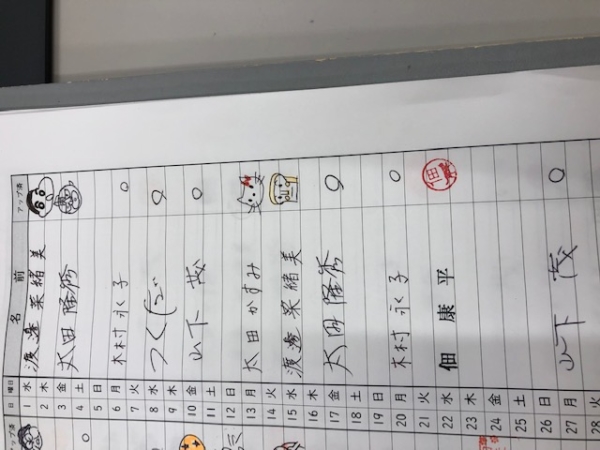 日 曜日 名 前 アップ済
1 水 渡邊 菜緒美
2 木
3 金 太田 隆秀
4 土
5 日
6 月 木村 永子
7 火
8 水 つくだ
9 木
10 金 山下 茂
11 土
12 日
13 月 太田 かすみ
14 火
15 水 渡邊 菜緒美
16 木
17 金 太田 隆秀
18 土
19 日
20 月 木村 永子
21 火
22 水 佃 康平
23 木
24 金
25 土
26 日
27 月 山下 茂
28 火
アップ済